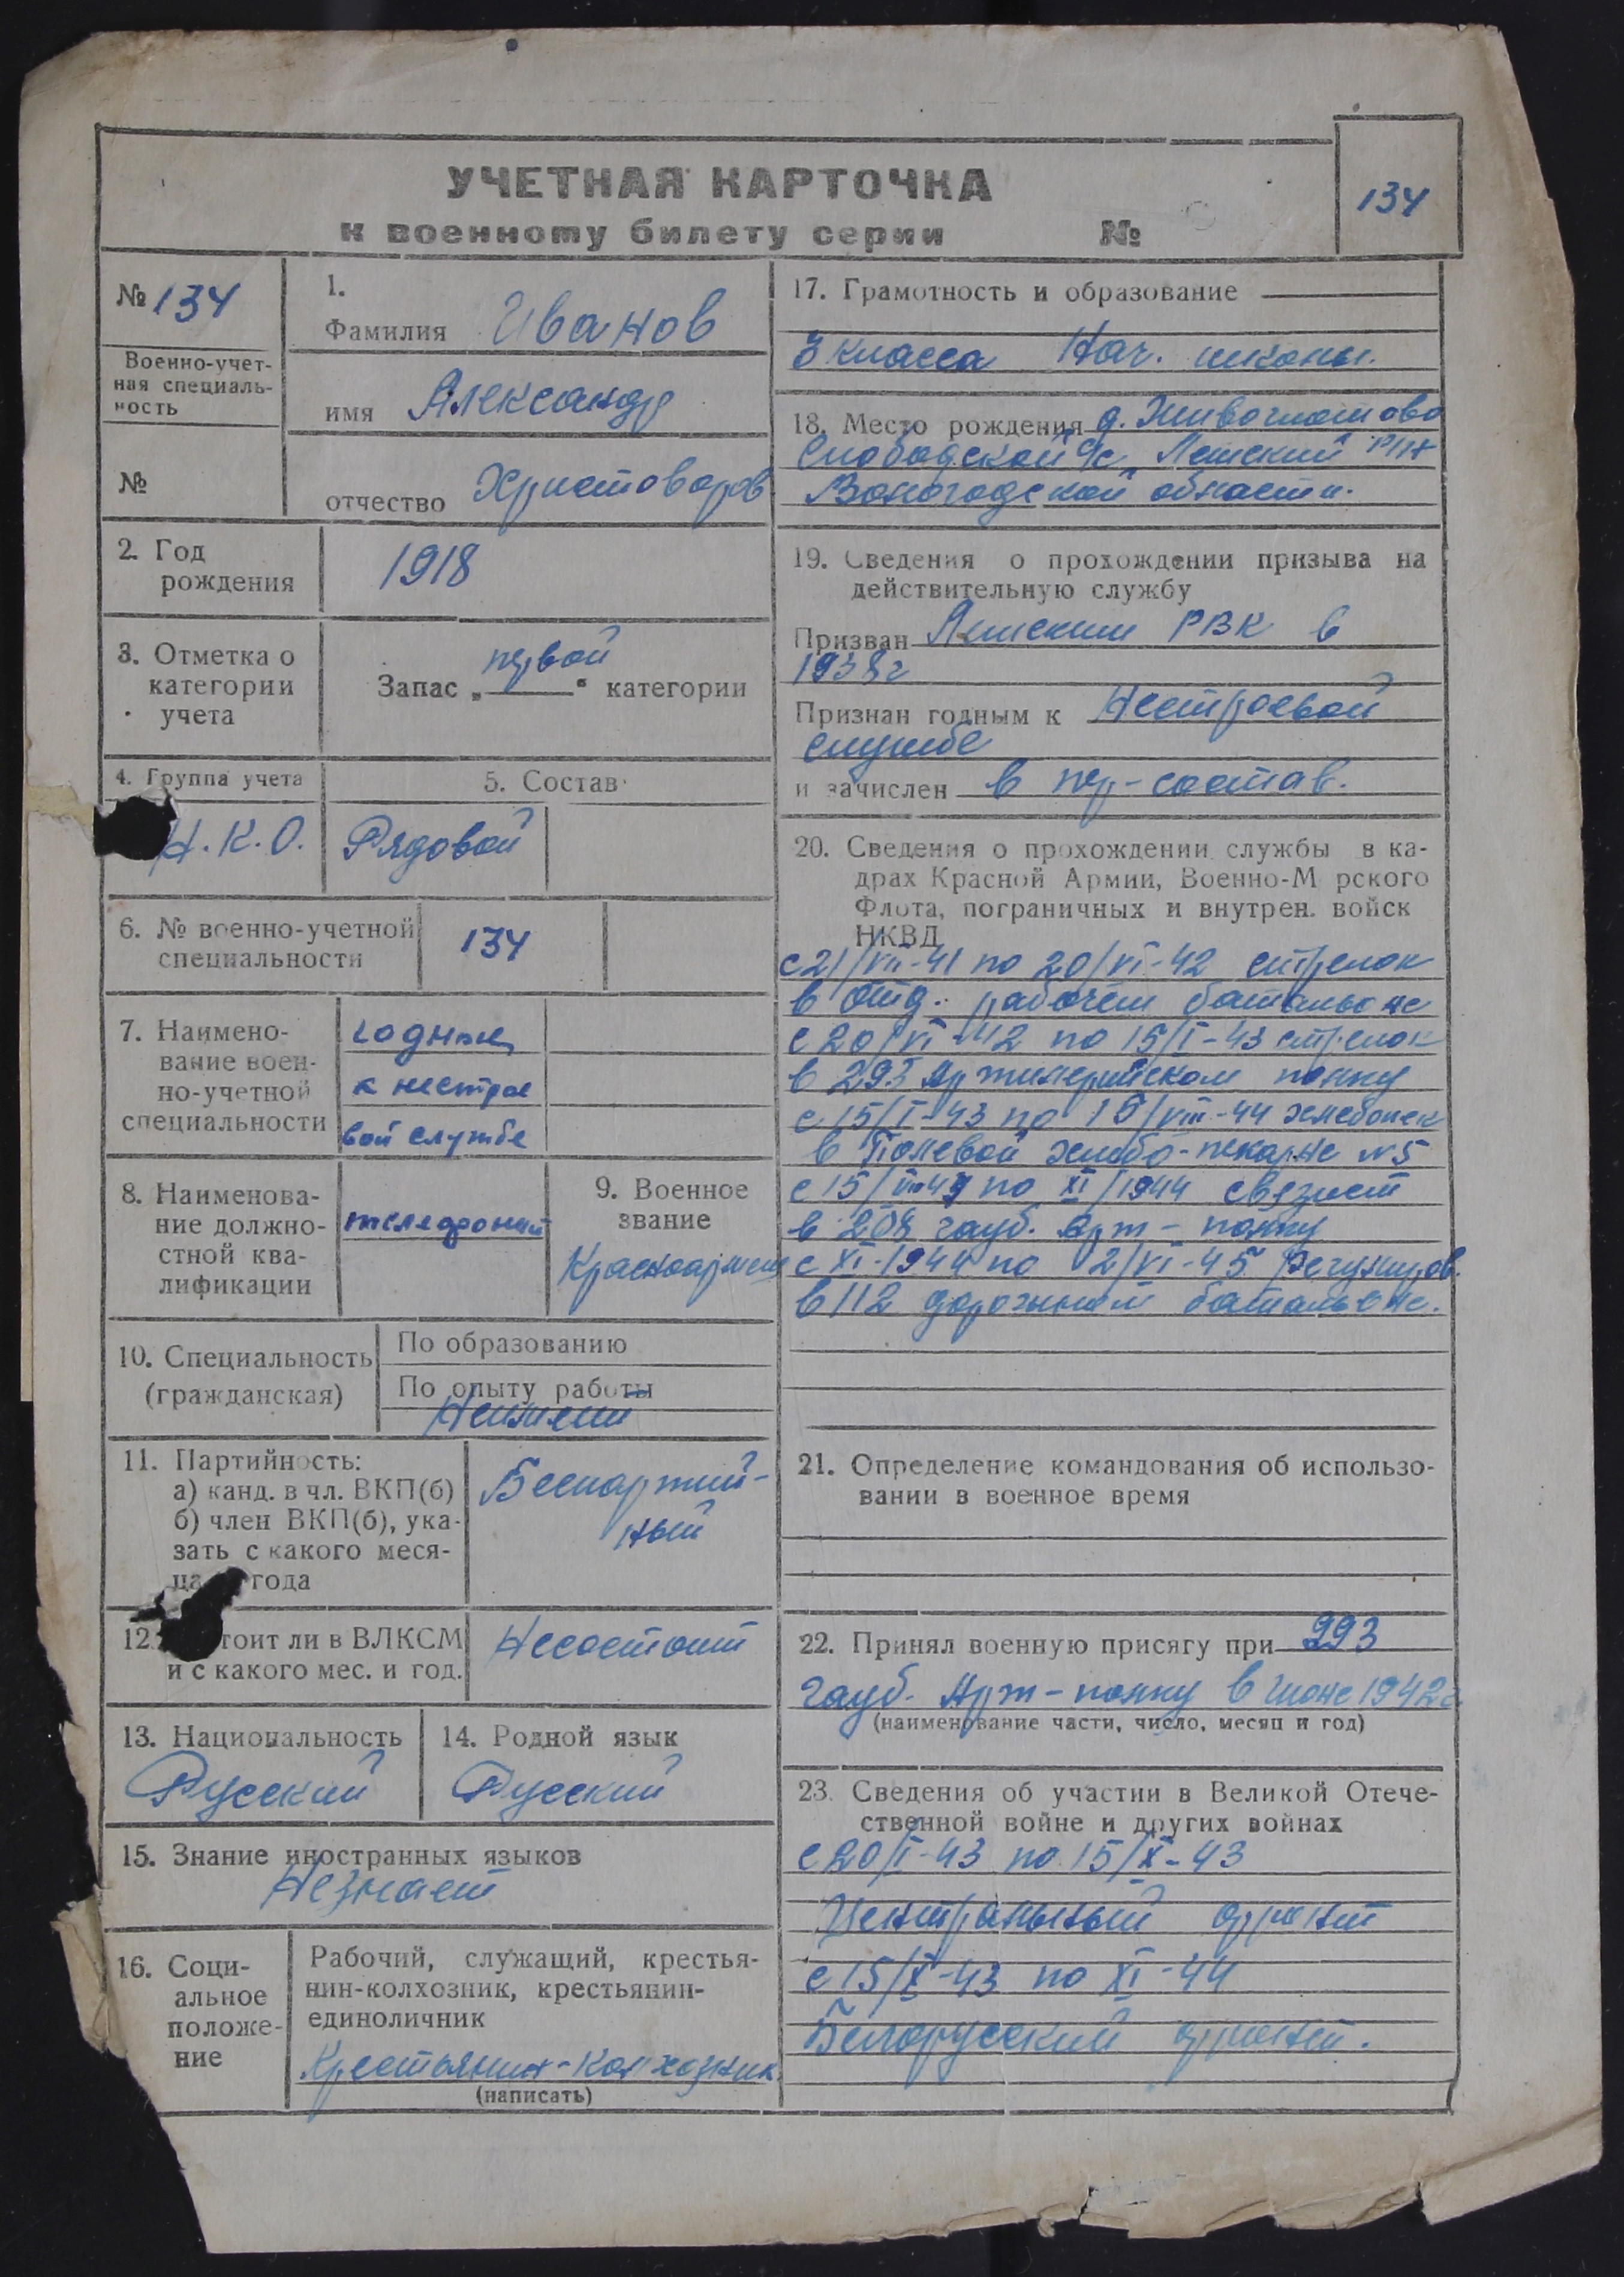 УЧЕТНАЯ КАРТОЧКА
к военному билету серии №
134
№ 134
Военно-учет-
ная специаль-
ность
№
1.
Фамилия Иванов
имя Александр
отчество Христофоров
2. Год
рождения
1918
3. Отметка о
категории
учета
Запас „первой“ категории
4. Группа учета
Н.К.О.
5. Состав
Рядовой
6. № военно-учетной
специальности
134
7. Наимено-
вание воен-
но-учетной
специальности
годный
к нестрое
вой службе
8. Наименова-
ние должно-
стной ква-
лификации
телефонист
9. Военное
звание
Красноармеец
10. Специальность
(гражданская)
По образованию
По опыту работы
Неимеет
11. Партийность:
а) канд. в чл. ВКП(б)
б) член ВКП(б), ука-
зать с какого меся-
ца года
Беспартий-
ный
12. тоит ли в ВЛКСМ
и с какого мес. и год.
Несостоит
13. Национальность
Русский
14. Родной язык
Русский
15. Знание иностранных языков
Незнает
16. Соци-
альное
положе-
ние
Рабочий, служащий, крестья-
нин-колхозник, крестьянин-
единоличник
Крестьянин-колхозник
(написать)
17. Грамотность и образование
3 класса Нач. школы.
18. Место рождения д.
Слободской с/с Лешский р-н
Вологодской области.
19. Сведения о прохождении призыва на
действительную службу
Призван Лешским РВК в
1938г
Признан годным к Нестроевой
службе
и зачислен в пер-состав.
20. Сведения о прохождении службы в ка-
драх Красной Армии, Военно-М рского
Флота, пограничных и внутрен. войск
НКВД
с 21/VII-41 по 20/VI-42 стрелок
в отд. рабочем батальоне
с 20/VI-42 по 15/I-43 стрелок
в 293 Артилерийском полку
с 15/I-43 по 15/VIII-44 хлебопек
в Полевой хлебо-пекарне №5
с 15/VIII 44 по XI/1944 связист
в 208 гауб. Арт-полку
с XI-1944 по 2/VI-45 Регулиров.
в 112 дорожном батальоне.
21. Определение командования об использо-
вании в военное время
22. Принял военную присягу при 293
гауб. Арт-полку в июне 1942г
(наименование части, число, месяц и год)
23. Сведения об участии в Великой Отече-
ственной войне и других войнах
с 20/I-43 по 15/X-43
Центральный фронт
с 15/X-43 по XI-44
Белорусский фронт.